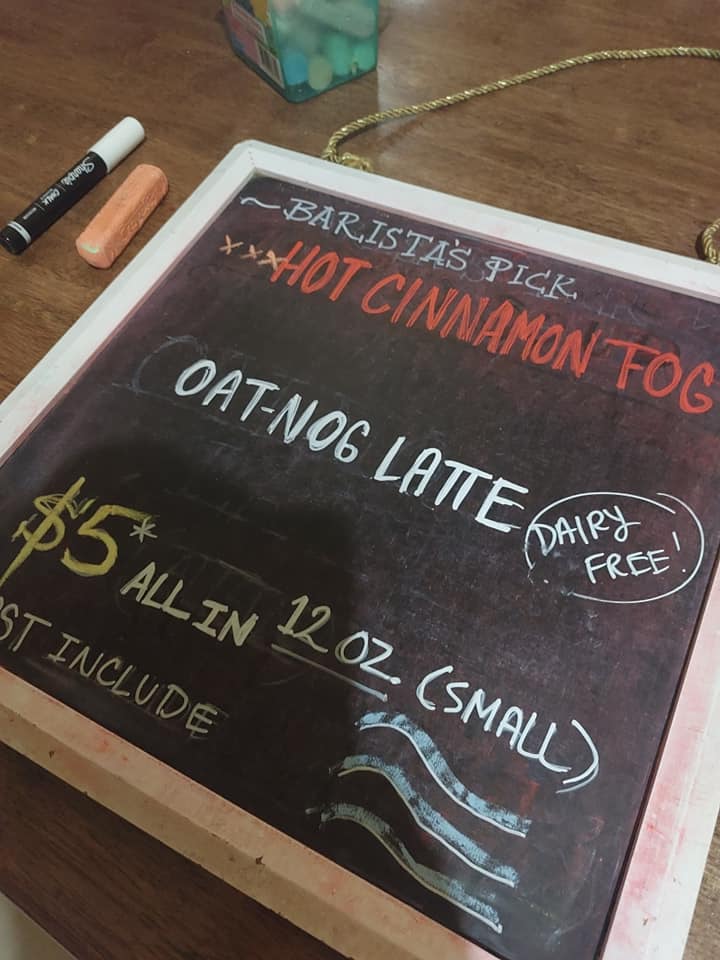 Sharpie
CHALK
~BARISTA'S PICK
xxxHOT CINNAMON FOG
OAT-NOG LATTE
DAIRY
FREE!
$5* ALL IN 12 OZ. (SMALL)
INCLUDE